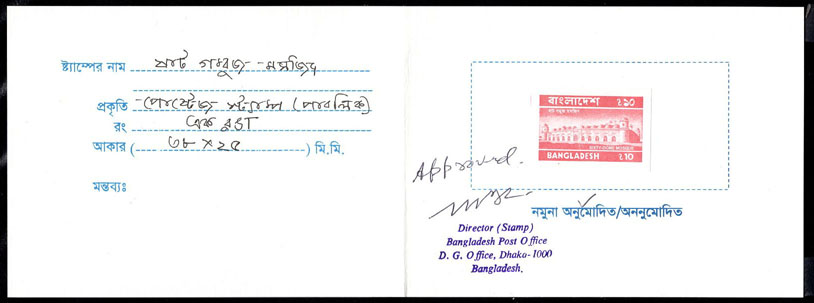 ষ্ট্যাম্পের নাম ষাট গম্বুজ মসজিদ
প্রকৃতি পোষ্টেজ স্ট্যাম্প (পাবলিক)
রং এক রঙা
আকার ( ৩৮ x ২৫ ) মি.মি.
মন্তব্যঃ
বাংলাদেশ ৳১০
ষাট গম্বুজ মসজিদ
SIXTY-DOME MOSQUE
BANGLADESH ৳10
Approved.
নমুনা অনুমোদিত/অননুমোদিত
Director (Stamp)
Bangladesh Post Office
D. G. Office, Dhaka-1000
Bangladesh.